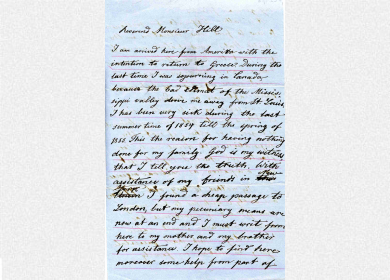 Reverend Monsieur Hill
I am arrived here from America with the
intention to return to Greece. During the
last time I was sojourning in Canada
because the bad climat of the Missis-
sippi valley drove me away from St Louis.
I has been very sick during the last
summer time of 1854 till the spring of
1855. This the reason for having nothing
done for my family. God is my witness
that I tell you the truth. With
assistance of my friends in New
York I found a cheap passage to
London, but my pecuniary means are
now at an end and I must write from
here to my mother and my brother
for assistance. I hope to find here
moreover some help from part of